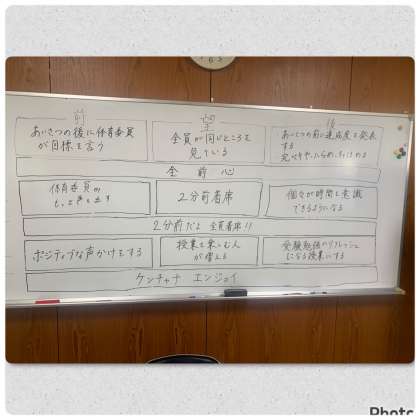 前
望
後
あいさつの後に体育委員
が目標を言う
全員が同じところを
見ている
あいさつの前に達成度を発表
する
全前心
体育委員の
もっと声を出す
2分前着席
個々が時間を意識
できるようになる
2分前だよ 全員着席!!
ポジティブな声かけをする
授業を楽しむ人
が増える
受験勉強のリフレッシュ
になる授業にする
ケンチャナ エンジョイ
Photo